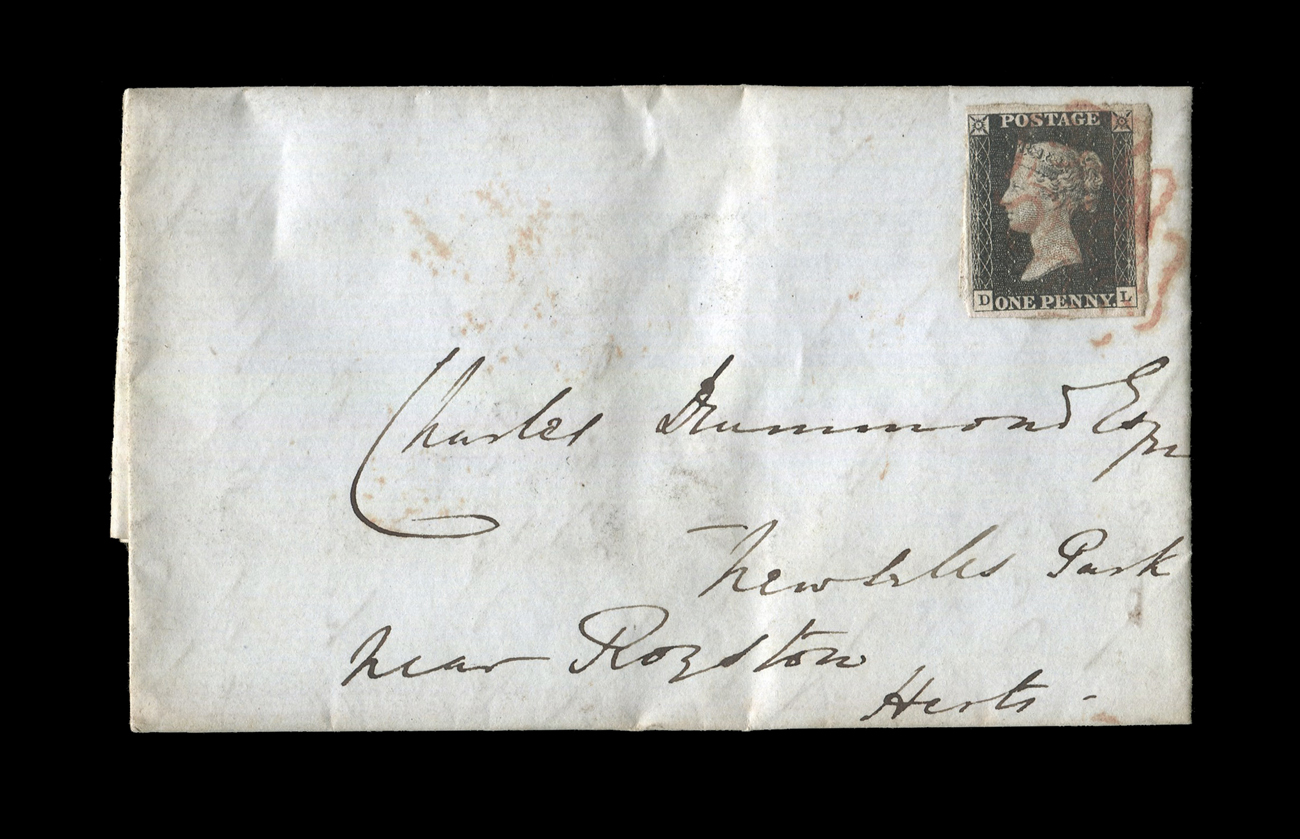 POSTAGE
D ONE PENNY. L
Charles Drummond Esqre
Newsells Park
near Royston
Herts -